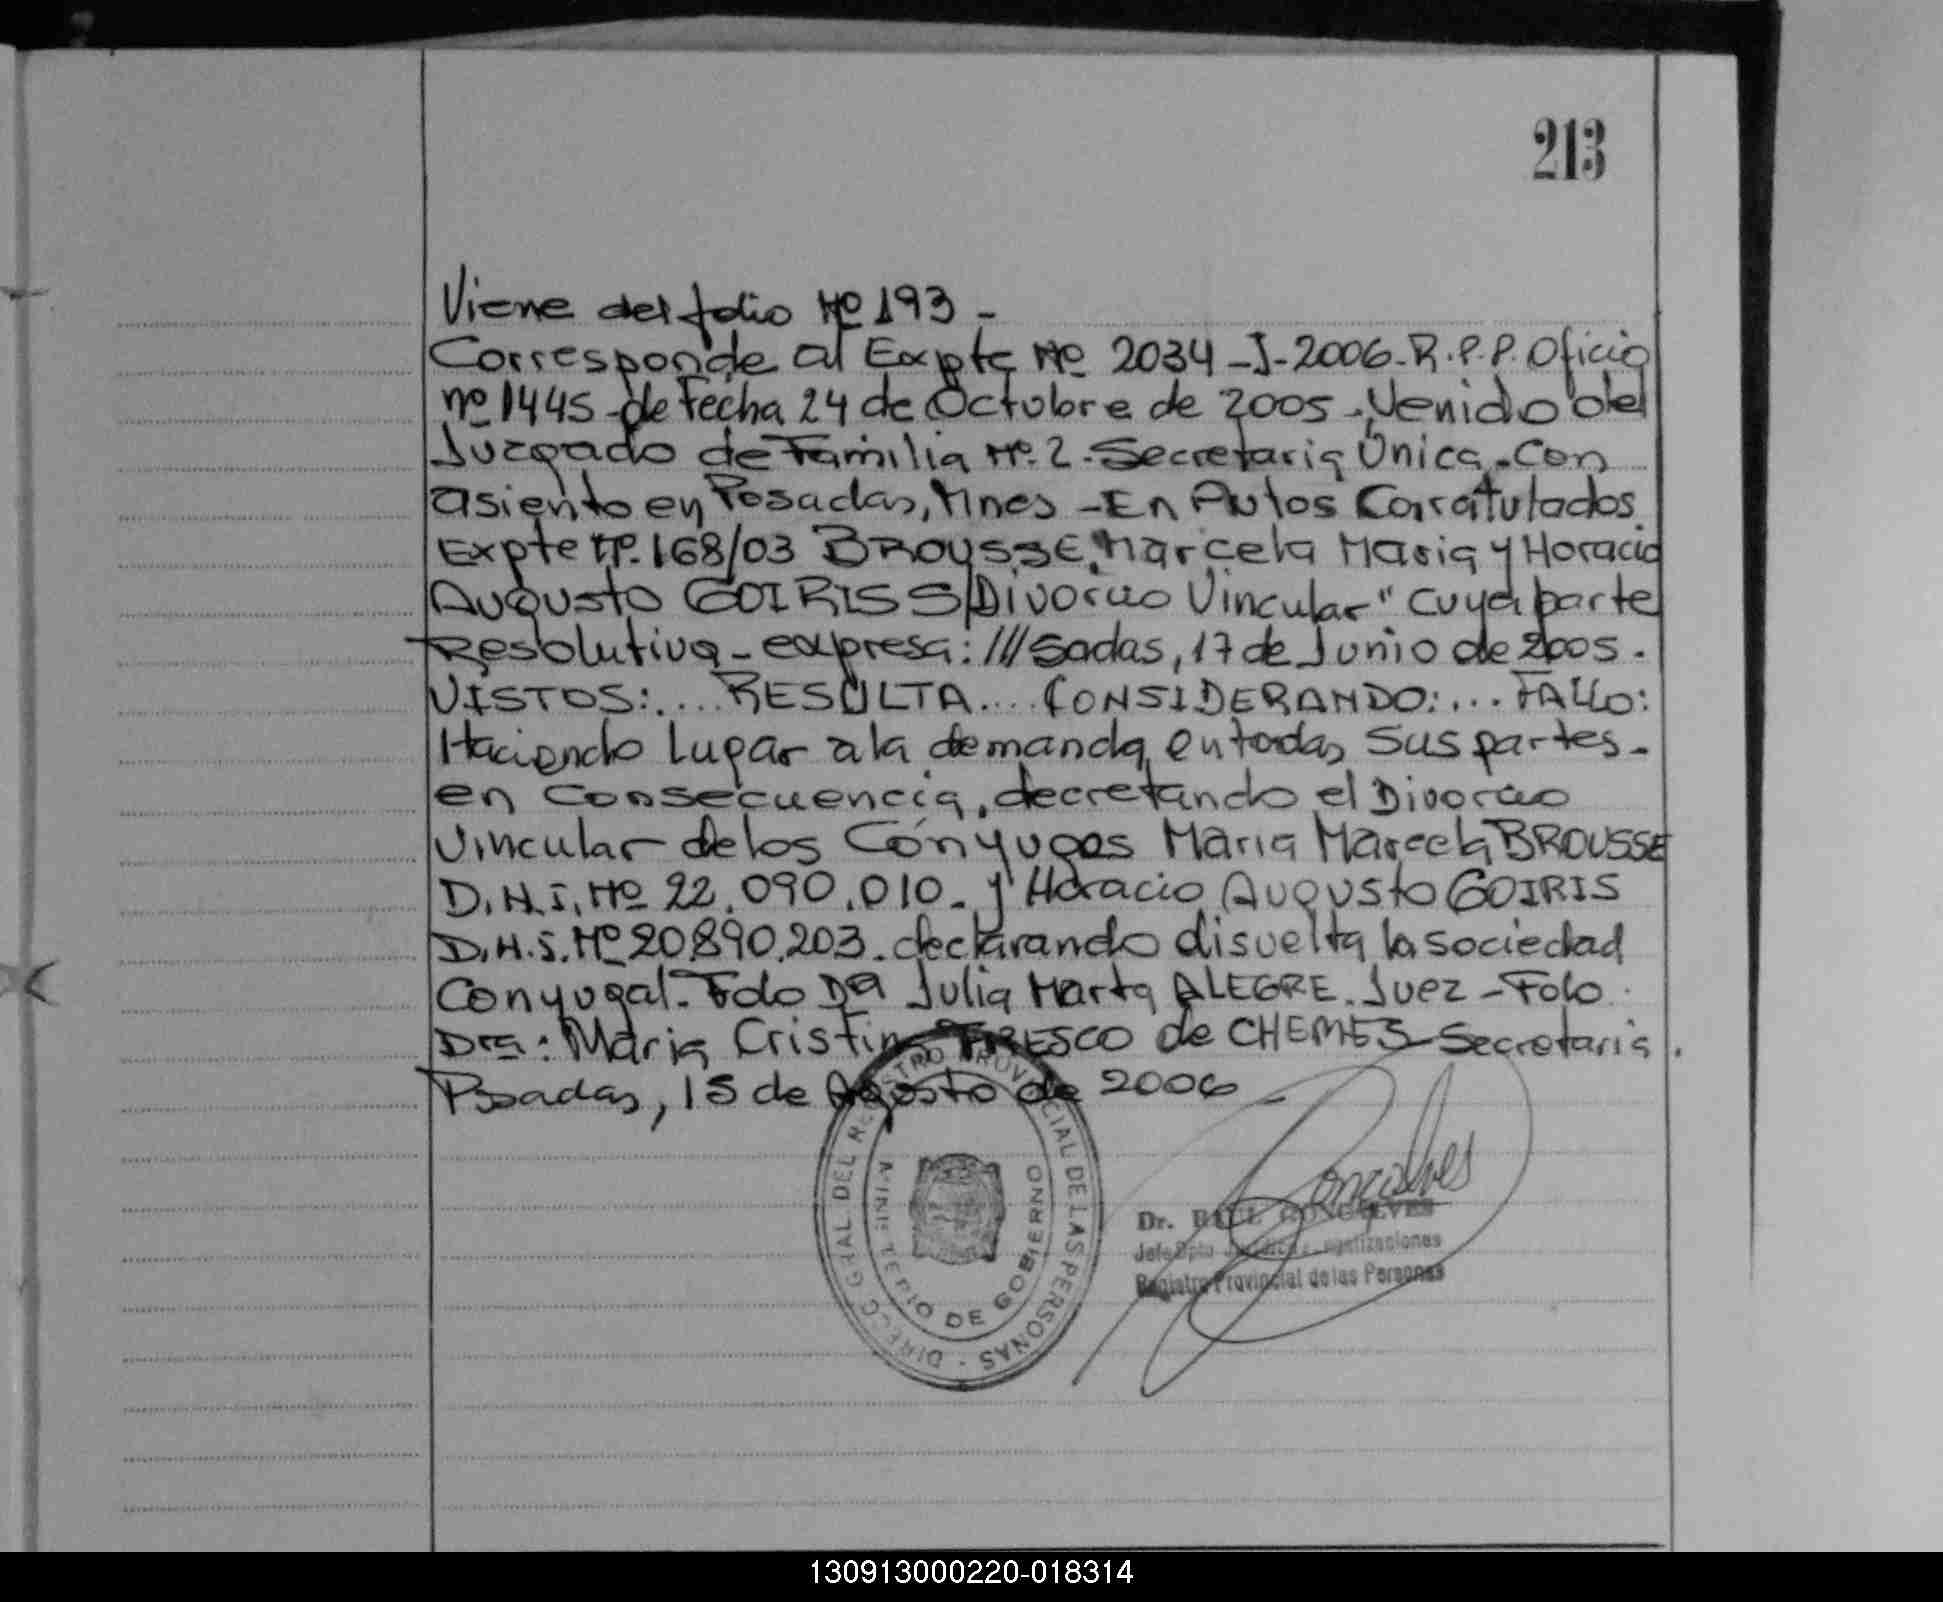 213
Viene del folio Nº 193 -
Corresponde al Expte Nº 2034-J-2006-R.P.P. Oficio
nº 1445-de Fecha 24 de Octubre de 2005. Venido del
Juzgado de Familia Nº. 2. Secretaria Única. Con
asiento en Posadas, Mnes - En Autos Caratulados
Expte Nº. 168/03 BROUSSE, Marcela Maria y Horacio
Augusto GOIRIS S/Divorcio Vincular" cuya parte
Resolutiva - expresa: ///sadas, 17 de Junio de 2005.
VISTOS:.... RESULTA.... CONSIDERANDO:... FALLO:
Haciendo Lugar a la demanda, en todas sus partes-
en consecuencia, decretando el Divorcio
Vincular de los Cónyuges Maria Marcela BROUSSE
D.N.I. Nº 22.090.010. y Horacio Augusto GOIRIS
D.N.I. Nº 20.890.203. declarando disuelta la sociedad
Conyugal. Fdo Dra Julia Marta ALEGRE. Juez - Fdo.
Dra: Maria Cristina FRESCO de CHEMES Secretaria.
Posadas, 15 de Agosto de 2006 -
DIRECC GRAL DEL REGISTRO PROVINCIAL DE LAS PERSONAS -
MINISTERIO DE GOBIERNO
Goncalves
Dr. RAUL GONCALVES
Jefe Dpto
Registro Provincial de las Personas
130913000220-018314